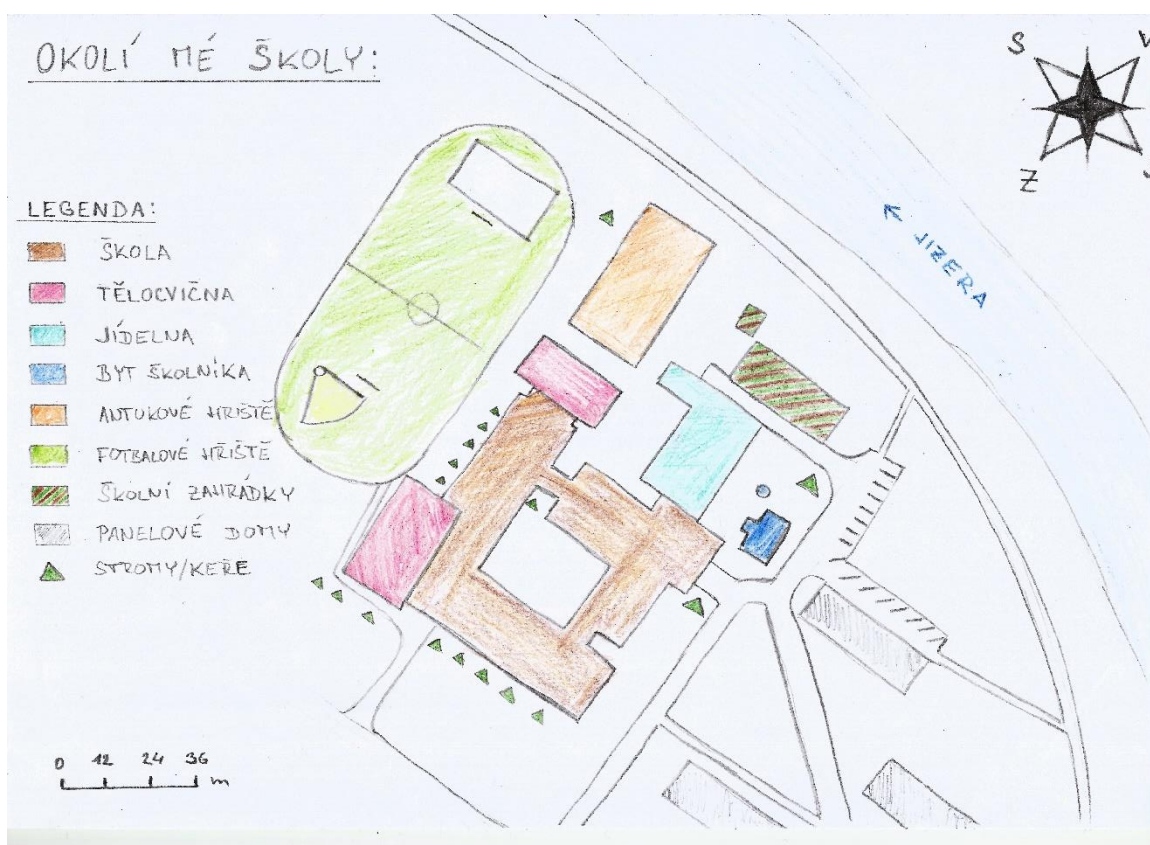 OKOLÍ MÉ ŠKOLY:
S V
Z J
← JIZERA
LEGENDA:
ŠKOLA
TĚLOCVIČNA
JÍDELNA
BYT ŠKOLNÍKA
ANTUKOVÉ HŘIŠTĚ
FOTBALOVÉ HŘIŠTĚ
ŠKOLNÍ ZAHRÁDKY
PANELOVÉ DOMY
STROMY/KEŘE
0 12 24 36
m